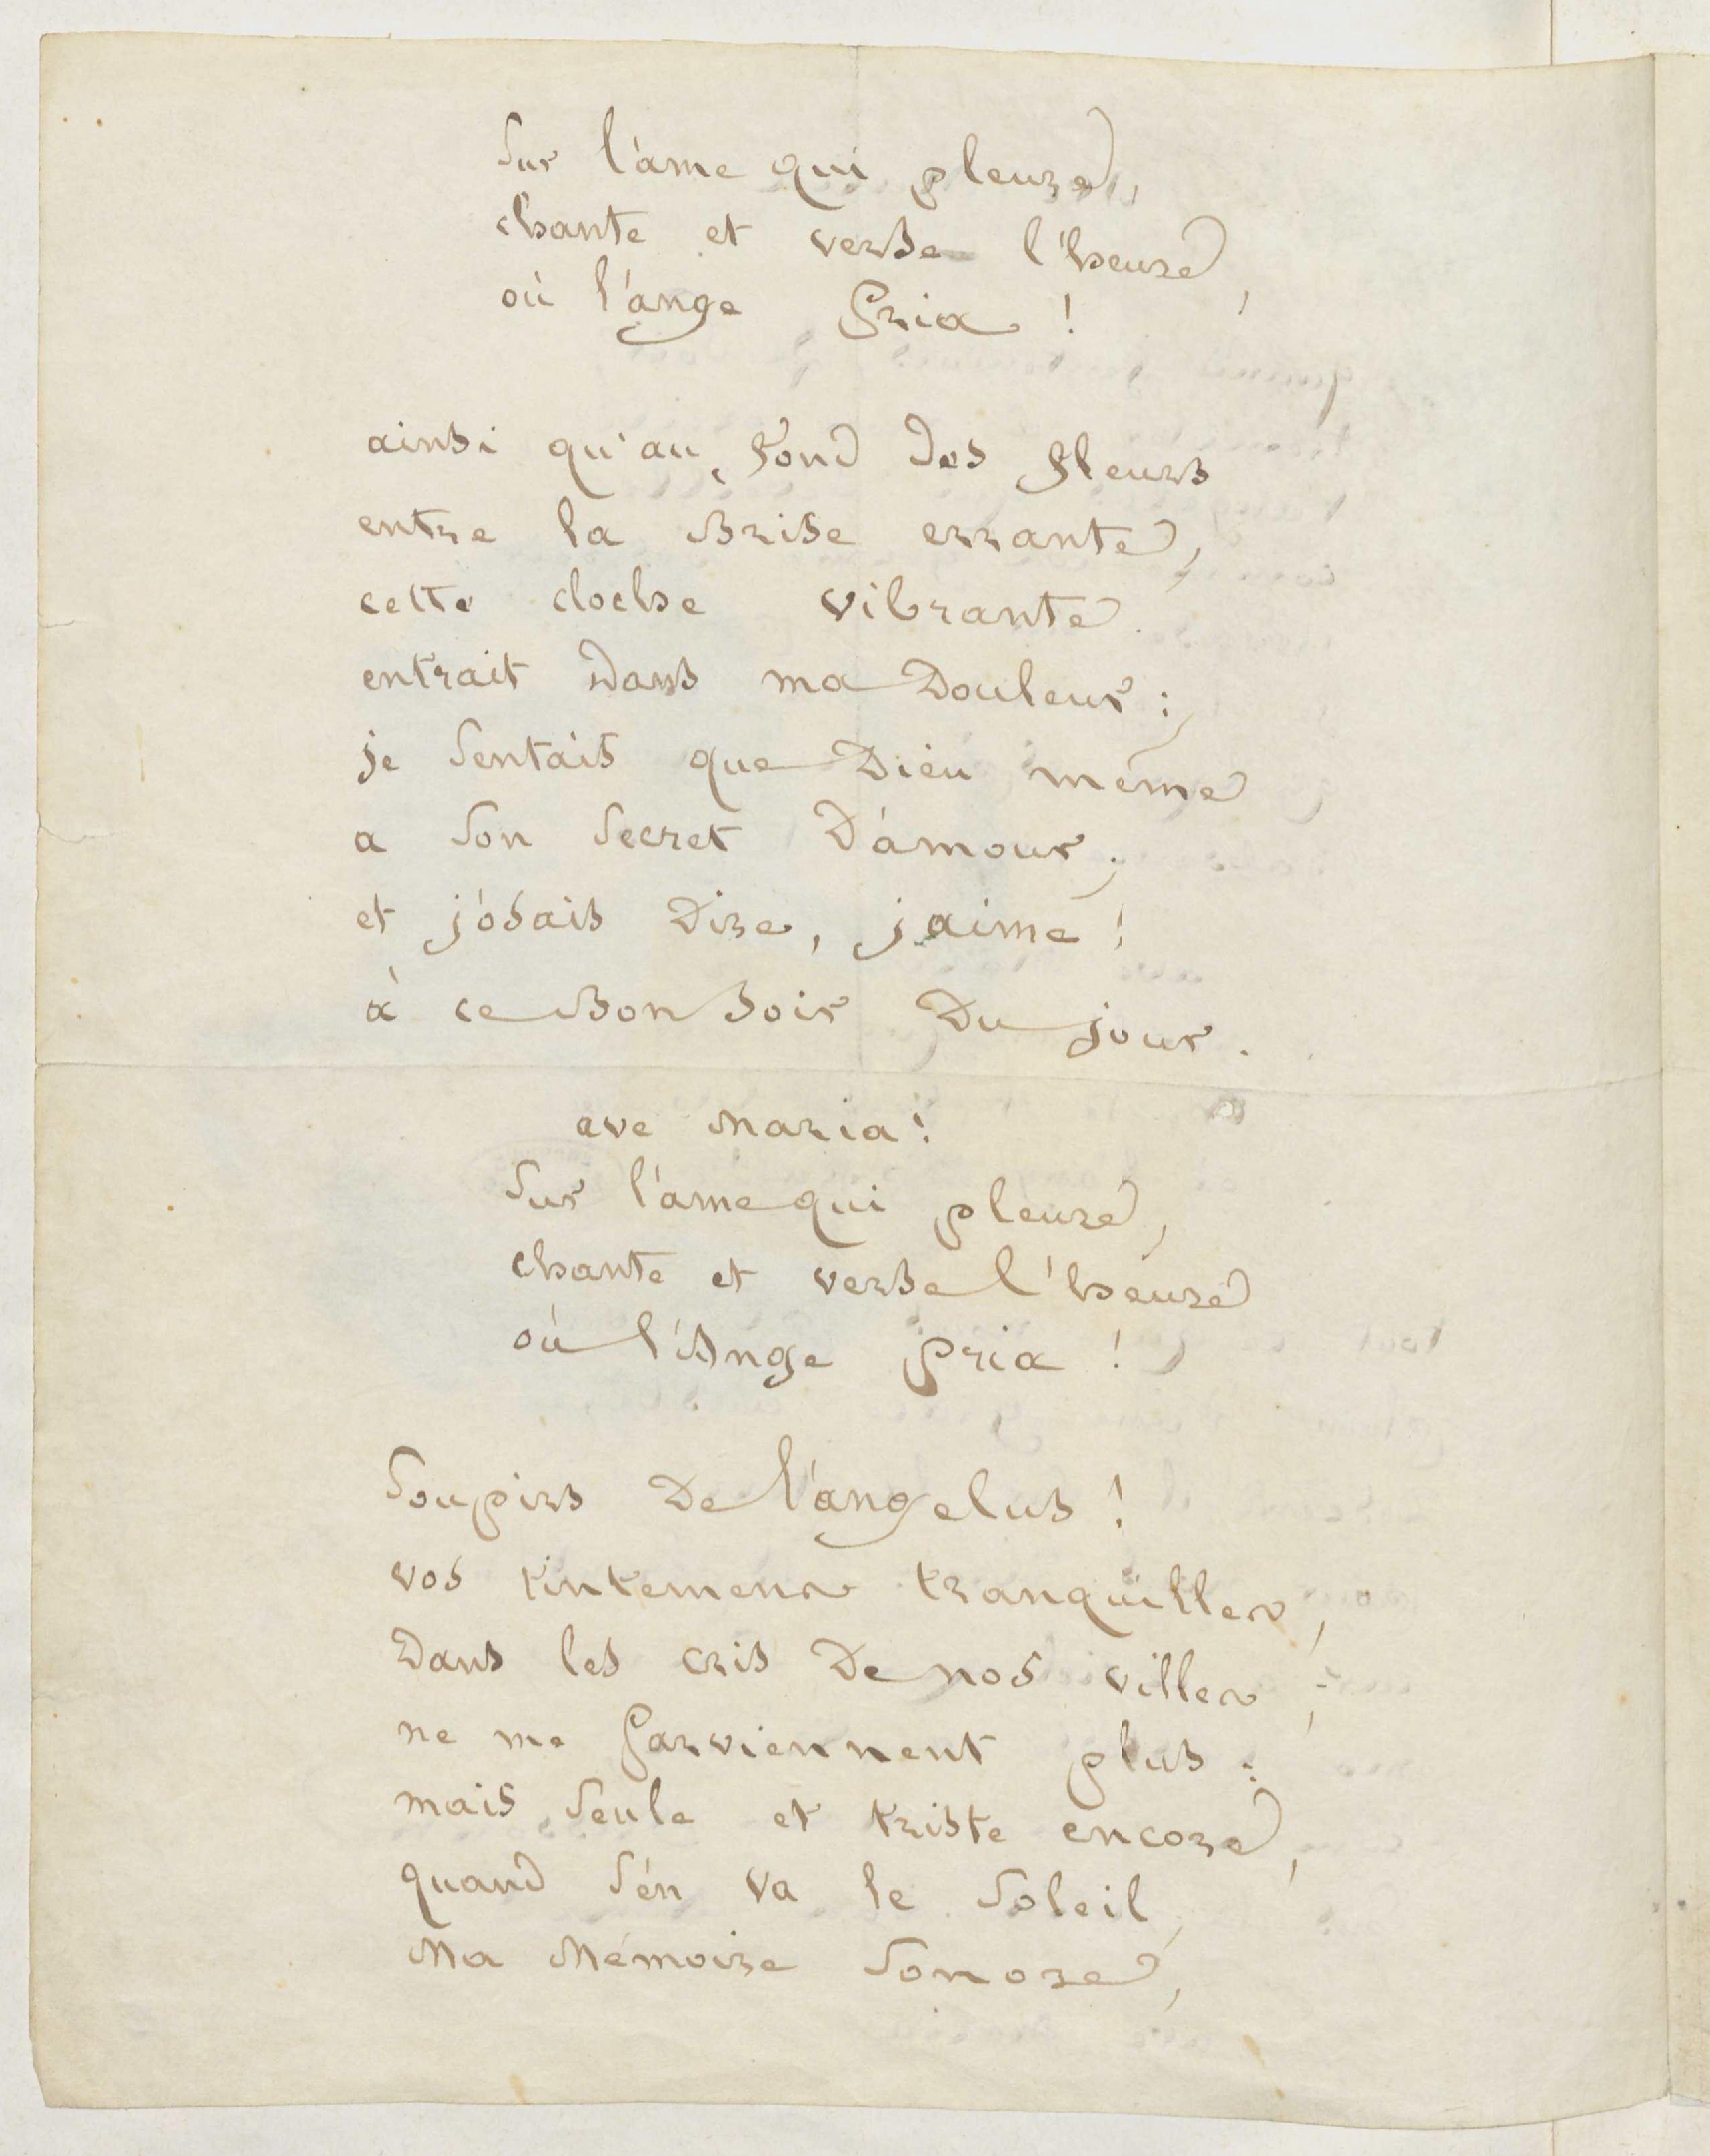 Sur l'ame qui pleure,
chante et verse l'heure,
où l'ange Pria !
ainsi qu'au fond des fleurs
entre la Brise errante,
cette cloche vibrante
entrait dans ma Douleur ;
je Sentais que Dieu même
a Son Secret D'amour ;
et j'osais Dire, j'aime !
à ce Bonsoir Du jour.
ave Maria !
Sur l'ame qui pleure,
chante et verse l'heure
où l'Ange Pria !
Soupirs De l'angelus !
vos tintemens tranquilles,
Dans les cris De nos villes ;
ne me Parviennent plus :
mais Seule et triste encore,
quand S'en va le Soleil,
Ma Mémoire Sonore,